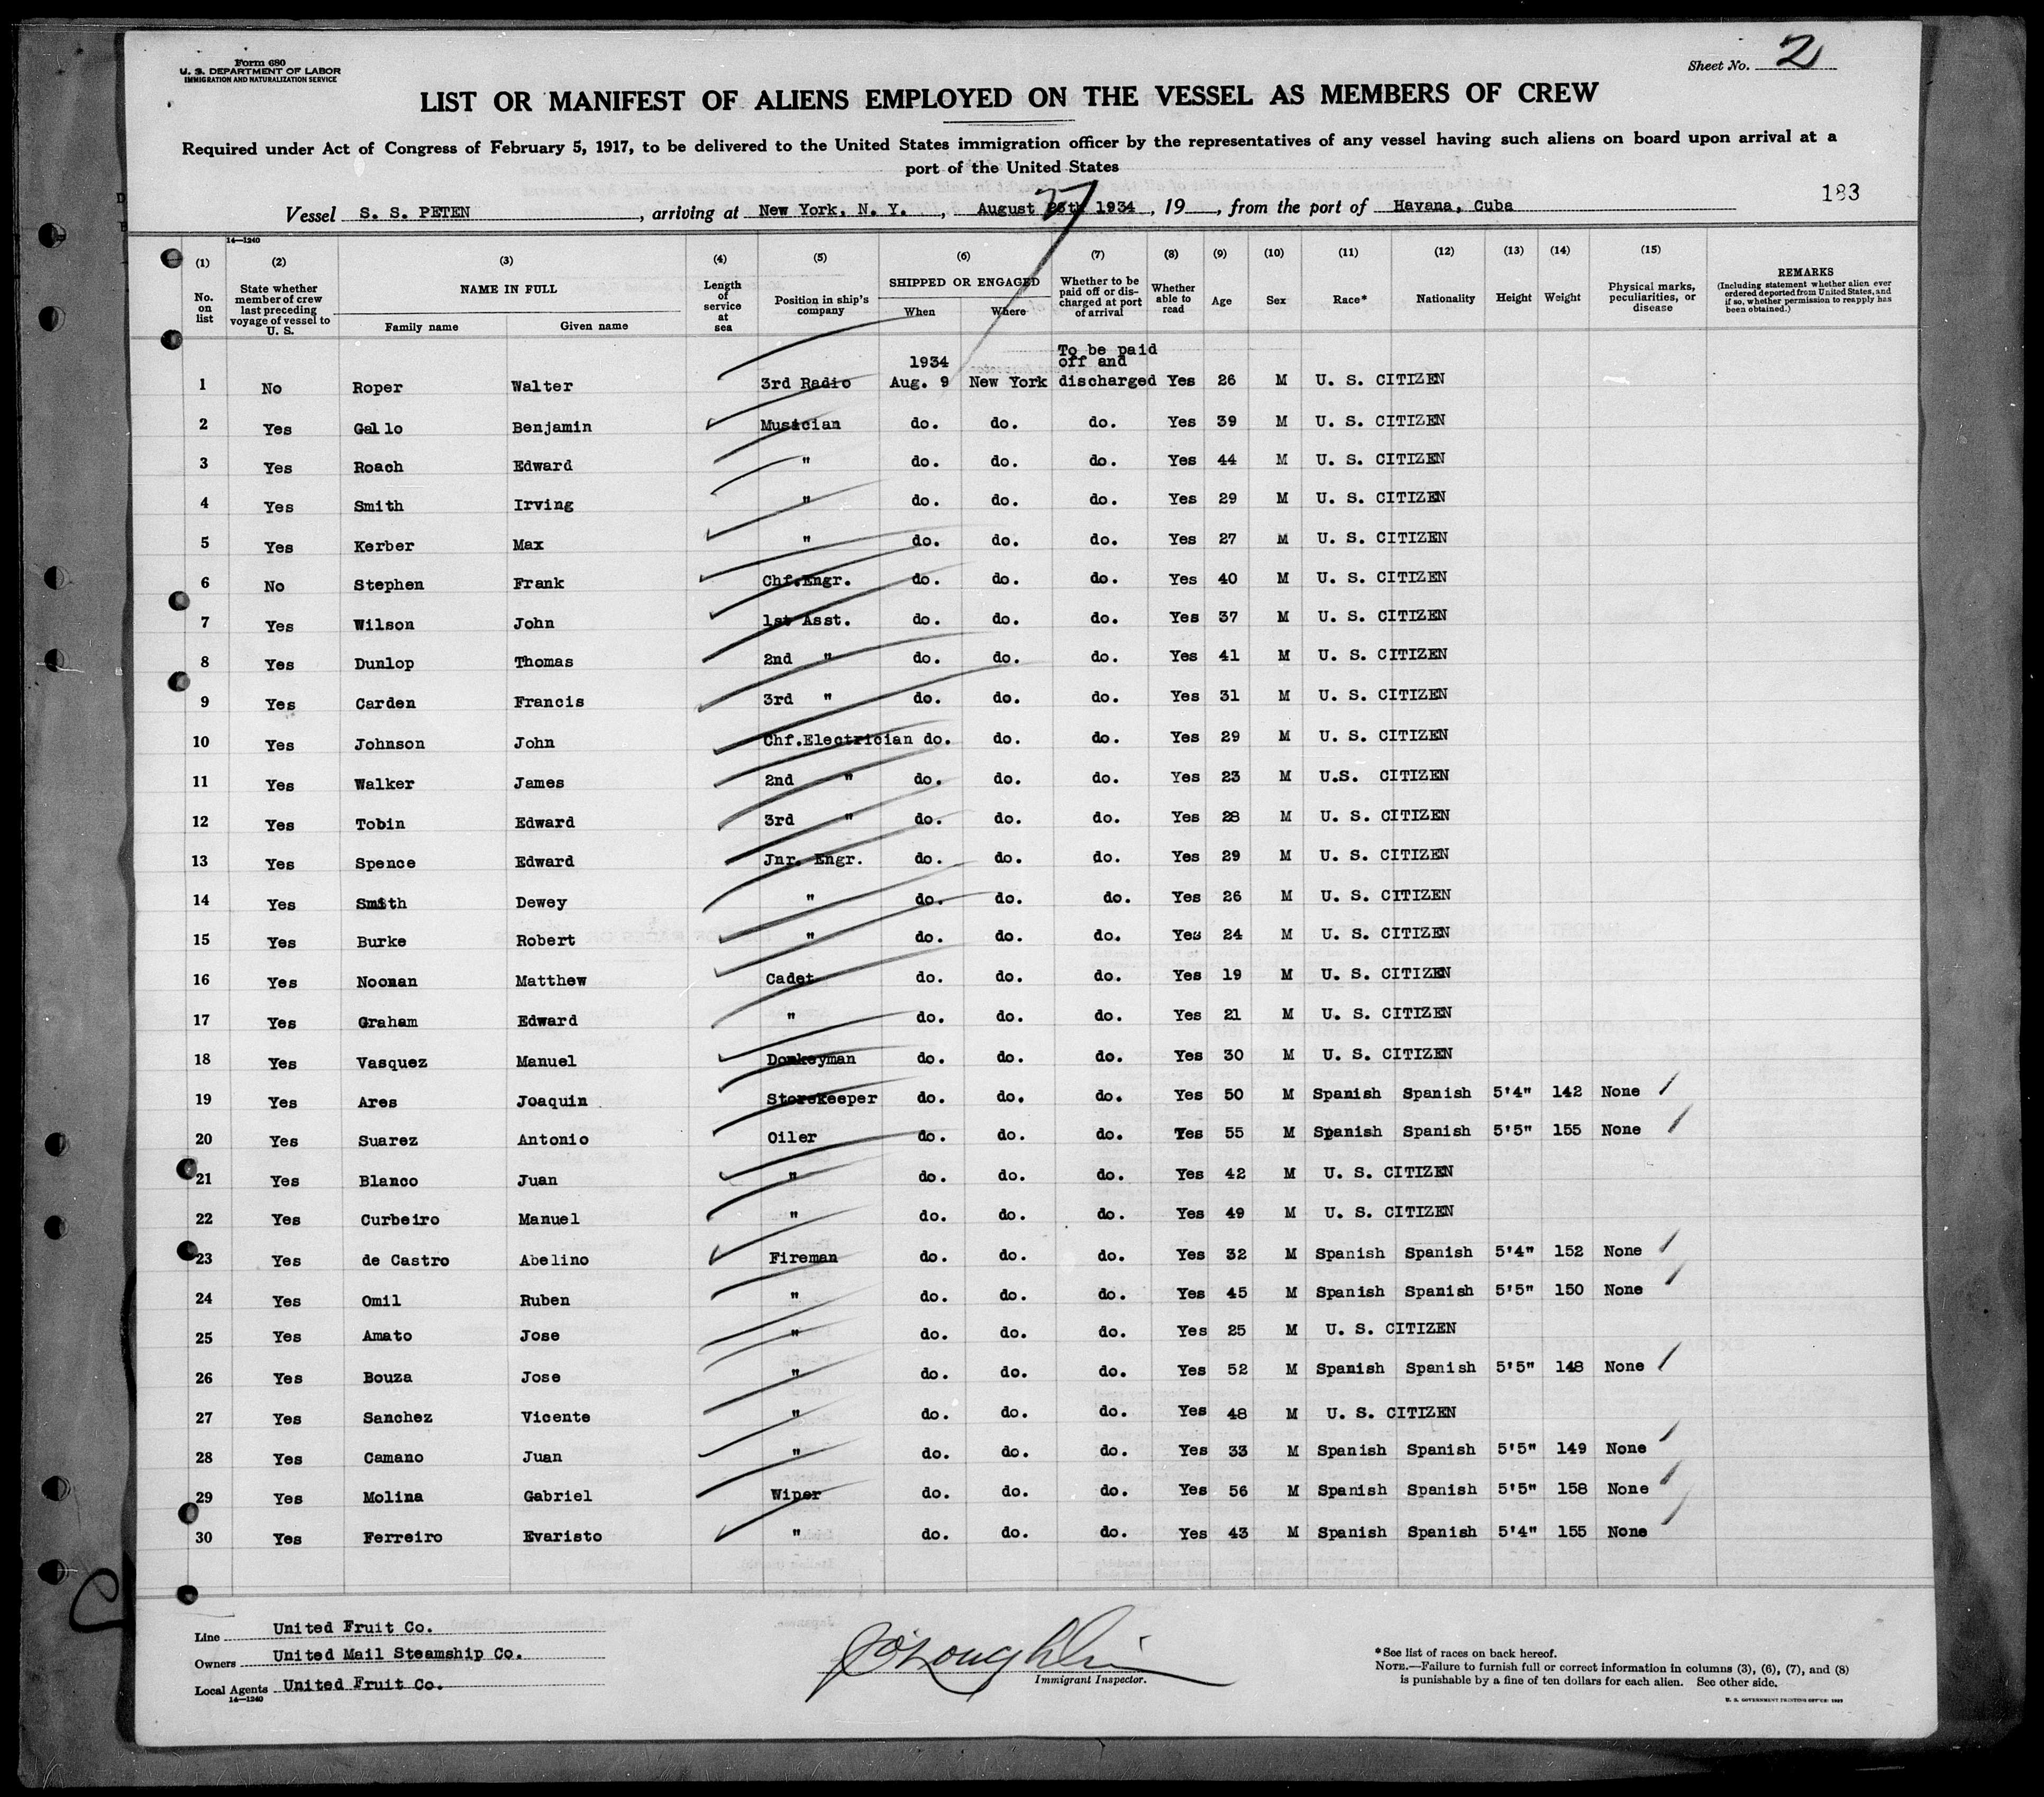 Form 680
U. S. DEPARTMENT OF LABOR
IMMIGRATION AND NATURALIZATION SERVICE
Sheet No. 2
LIST OR MANIFEST OF ALIENS EMPLOYED ON THE VESSEL AS MEMBERS OF CREW
Required under Act of Congress of February 5, 1917, to be delivered to the United States immigration officer by the representatives of any vessel having such aliens on board upon arrival at a
port of the United States
183
Vessel S. S. PETEN, arriving at New York, N. Y., August 27 1934, 19__, from the port of Havana, Cuba
14—1240
(1) (2) (3) (4) (5) (6) (7) (8) (9) (10) (11) (12) (13) (14) (15)
No. on list
State whether member of crew last preceding voyage of vessel to U. S.
NAME IN FULL
Family name Given name
Length of service at sea
Position in ship's company
SHIPPED OR ENGAGED
When Where
Whether to be paid off or discharged at port of arrival
Whether able to read
Age
Sex
Race*
Nationality
Height
Weight
Physical marks, peculiarities, or disease
REMARKS
(Including statement whether alien ever ordered deported from United States, and if so, whether permission to reapply has been obtained.)
1 No Roper Walter 3rd Radio 1934 Aug. 9 New York To be paid off and discharged Yes 26 M U. S. CITIZEN
2 Yes Gallo Benjamin Musician do. do. do. Yes 39 M U. S. CITIZEN
3 Yes Roach Edward " do. do. do. Yes 44 M U. S. CITIZEN
4 Yes Smith Irving " do. do. do. Yes 29 M U. S. CITIZEN
5 Yes Kerber Max " do. do. do. Yes 27 M U. S. CITIZEN
6 No Stephen Frank Chf.Engr. do. do. do. Yes 40 M U. S. CITIZEN
7 Yes Wilson John 1st Asst. do. do. do. Yes 37 M U. S. CITIZEN
8 Yes Dunlop Thomas 2nd " do. do. do. Yes 41 M U. S. CITIZEN
9 Yes Carden Francis 3rd " do. do. do. Yes 31 M U. S. CITIZEN
10 Yes Johnson John Chf.Electrician do. do. do. Yes 29 M U. S. CITIZEN
11 Yes Walker James 2nd " do. do. do. Yes 23 M U.S. CITIZEN
12 Yes Tobin Edward 3rd " do. do. do. Yes 28 M U. S. CITIZEN
13 Yes Spence Edward Jnr. Engr. do. do. do. Yes 29 M U. S. CITIZEN
14 Yes Smith Dewey " do. do. do. Yes 26 M U. S. CITIZEN
15 Yes Burke Robert " do. do. do. Yes 24 M U. S. CITIZEN
16 Yes Noonan Matthew Cadet do. do. do. Yes 19 M U. S. CITIZEN
17 Yes Graham Edward " do. do. do. Yes 21 M U. S. CITIZEN
18 Yes Vasquez Manuel Donkeyman do. do. do. Yes 30 M U. S. CITIZEN
19 Yes Ares Joaquin Storekeeper do. do. do. Yes 50 M Spanish Spanish 5'4" 142 None
20 Yes Suarez Antonio Oiler do. do. do. Yes 55 M Spanish Spanish 5'5" 155 None
21 Yes Blanco Juan " do. do. do. Yes 42 M U. S. CITIZEN
22 Yes Curbeiro Manuel " do. do. do. Yes 49 M U. S. CITIZEN
23 Yes de Castro Abelino Fireman do. do. do. Yes 32 M Spanish Spanish 5'4" 152 None
24 Yes Omil Ruben " do. do. do. Yes 45 M Spanish Spanish 5'5" 150 None
25 Yes Amato Jose " do. do. do. Yes 25 M U. S. CITIZEN
26 Yes Bouza Jose " do. do. do. Yes 52 M Spanish Spanish 5'5" 148 None
27 Yes Sanchez Vicente " do. do. do. Yes 48 M U. S. CITIZEN
28 Yes Camano Juan " do. do. do. Yes 33 M Spanish Spanish 5'5" 149 None
29 Yes Molina Gabriel Wiper do. do. do. Yes 56 M Spanish Spanish 5'5" 158 None
30 Yes Ferreiro Evaristo " do. do. do. Yes 43 M Spanish Spanish 5'4" 155 None
Line United Fruit Co.
Owners United Mail Steamship Co.
Local Agents United Fruit Co.
14—1240
O'Loughlin
Immigrant Inspector.
*See list of races on back hereof.
NOTE.—Failure to furnish full or correct information in columns (3), (6), (7), and (8)
is punishable by a fine of ten dollars for each alien. See other side.
U. S. GOVERNMENT PRINTING OFFICE: